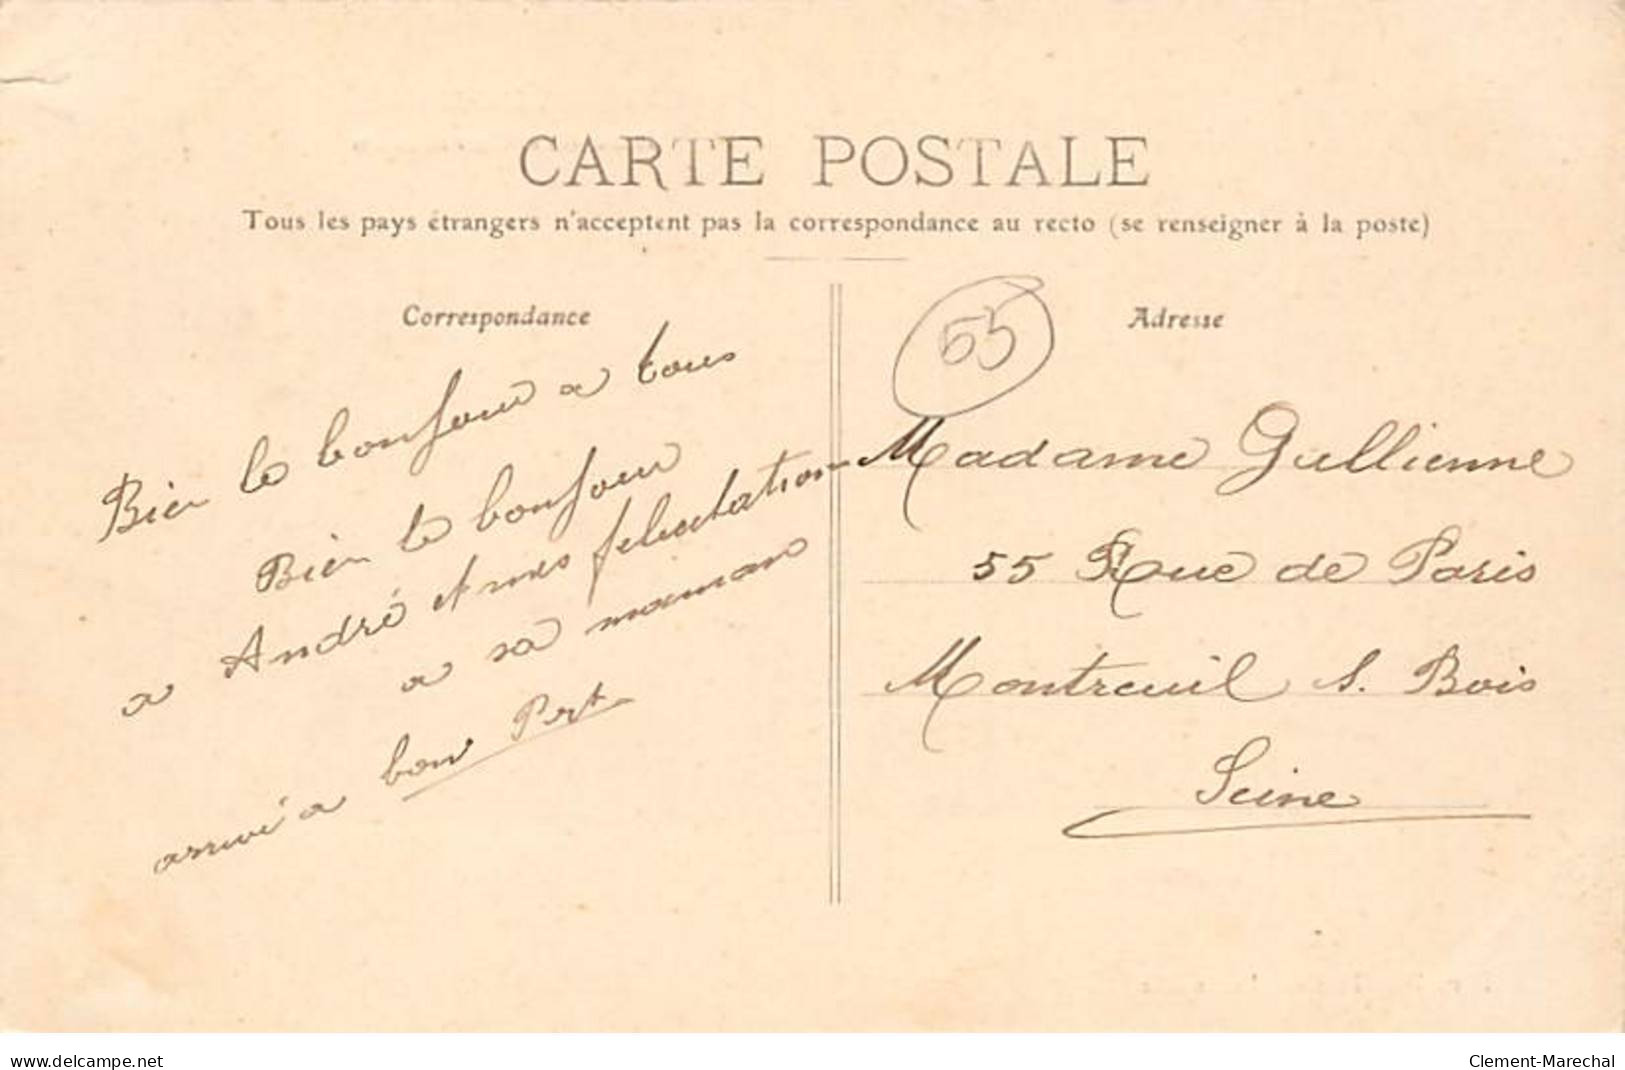 CARTE POSTALE
Tous les pays étrangers n'acceptent pas la correspondance au recto (se renseigner à la poste)
Correspondance
Bien le bonjour a tous
Bien le bonjour
a André et mes felecitation
a sa maman
arrivé a bon Port
55
Adresse
Madame Gullienne
55 Rue de Paris
Montreuil s. Bois
Seine
www.delcampe.net
Clement-Marechal